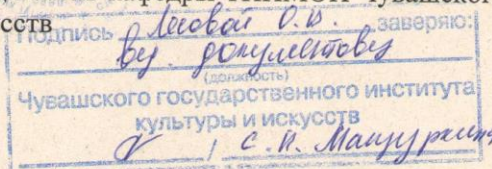 сств
Подпись Лосовой О.В. заверяю:
Вед. документовед
(должность)
Чувашского государственного института
культуры и искусств
/ С.П.